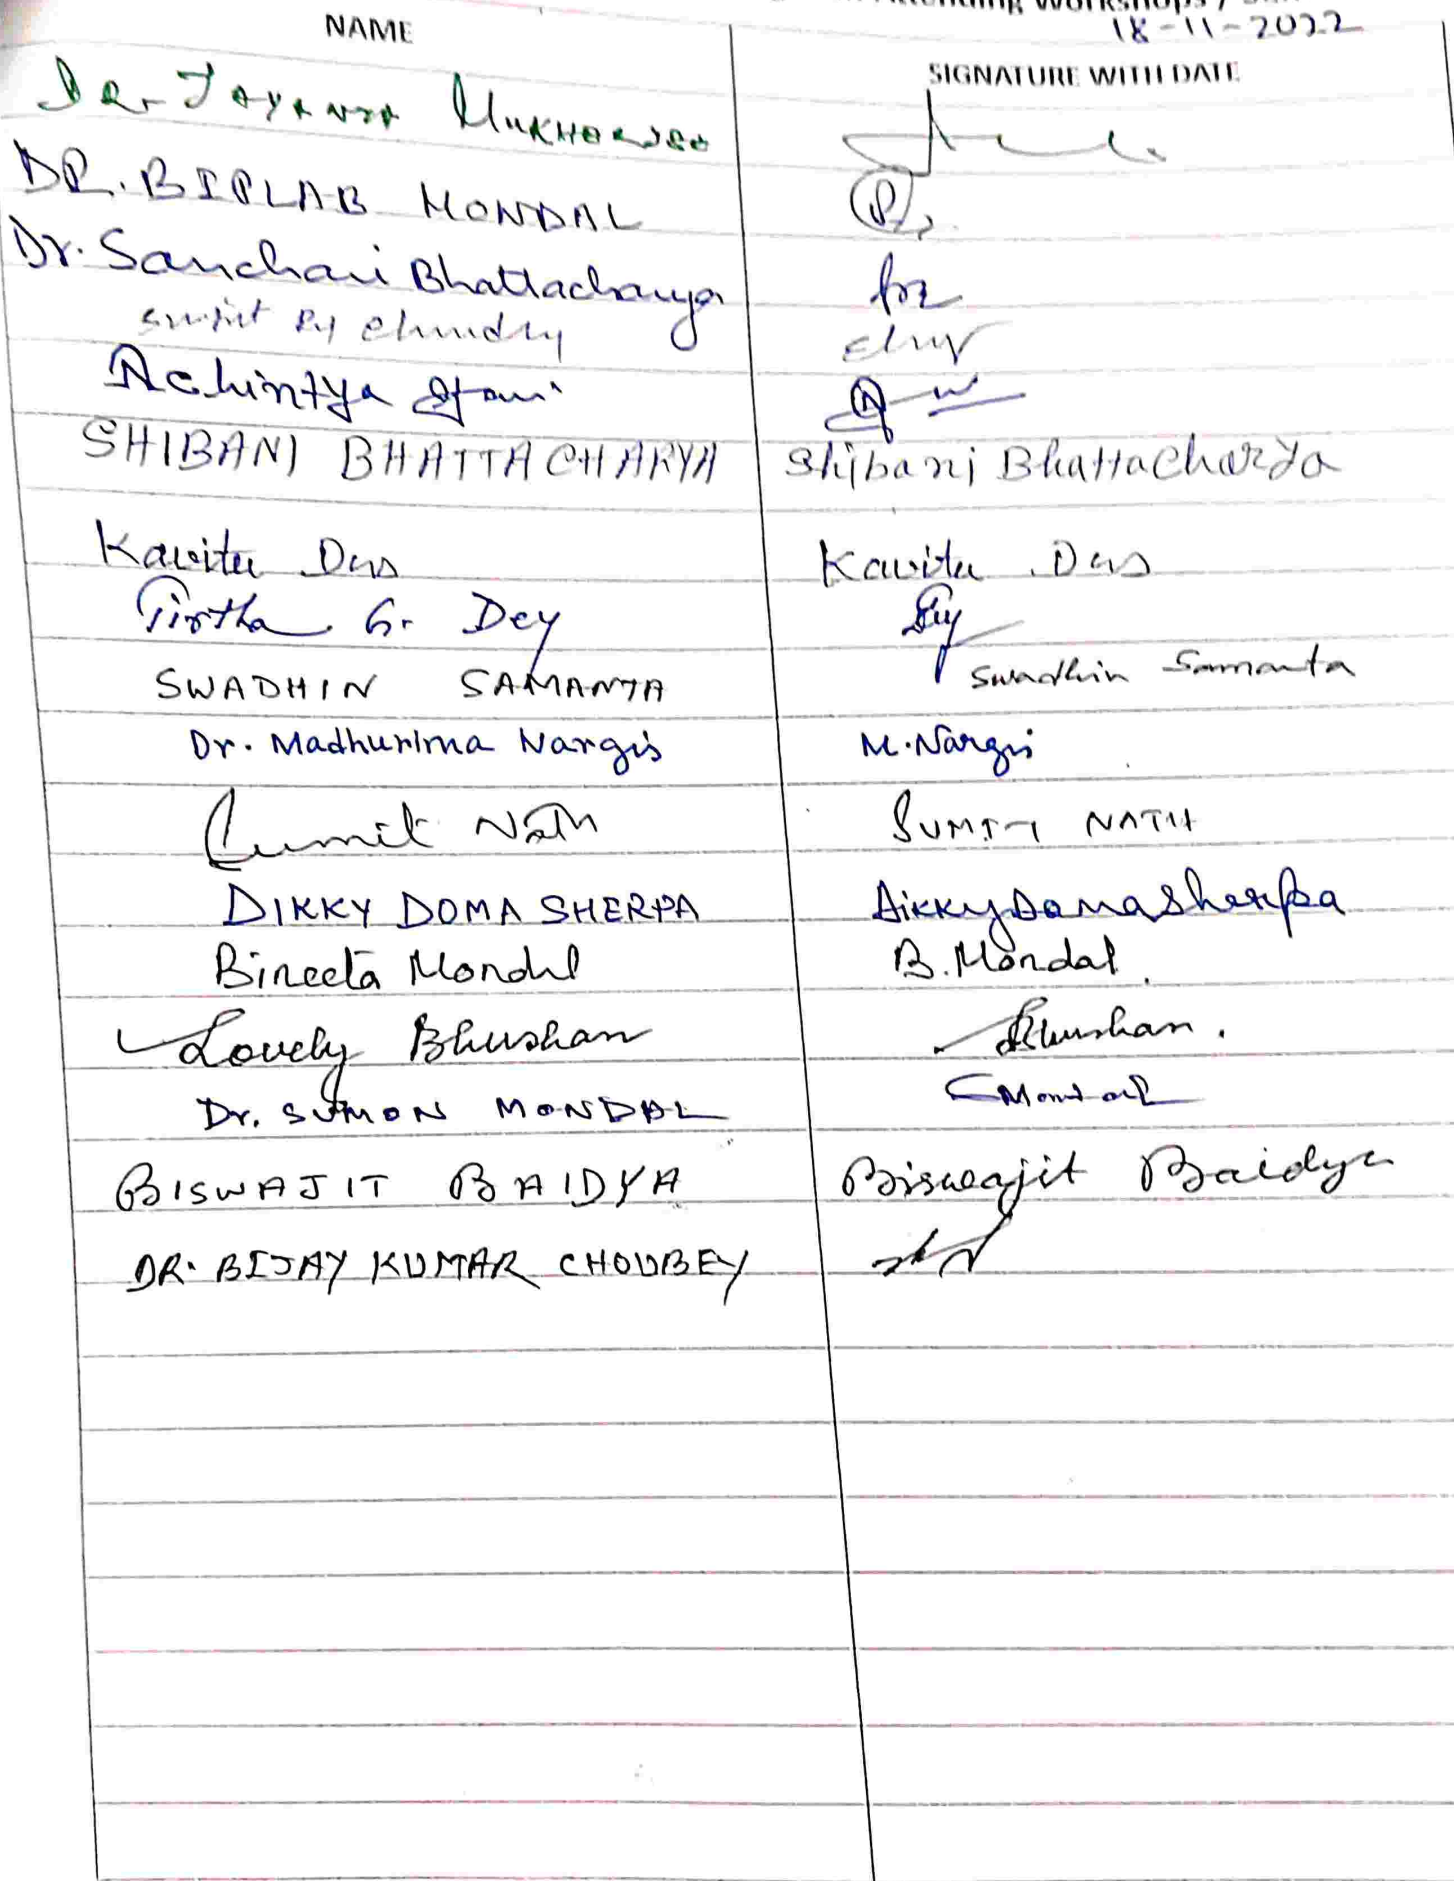 Attending Workshops /
18-11-2022
NAME SIGNATURE WITH DATE
Dr. JAYANTA MUKHERJEE
DR. BIPLAB MONDAL
Dr. Sanchari Bhattacharya
Achintya
SHIBANI BHATTACHARYA Shibani Bhattacharya
Kavita Das Kavita Das
Tirtha G. Dey Dey
SWADHIN SAMANTA Swadhin Samanta
Dr. Madhurima Nargis M. Nargis
Sumit Nath SUMIT NATH
DIKKY DOMA SHERPA Dikky Doma Sherpa
Bineeta Mondal B. Mondal
Lovely Bhushan Bhushan.
Dr. SUMON MONDAL SMondal
BISWAJIT BAIDYA Biswajit Baidya
DR. BIJAY KUMAR CHOUBEY